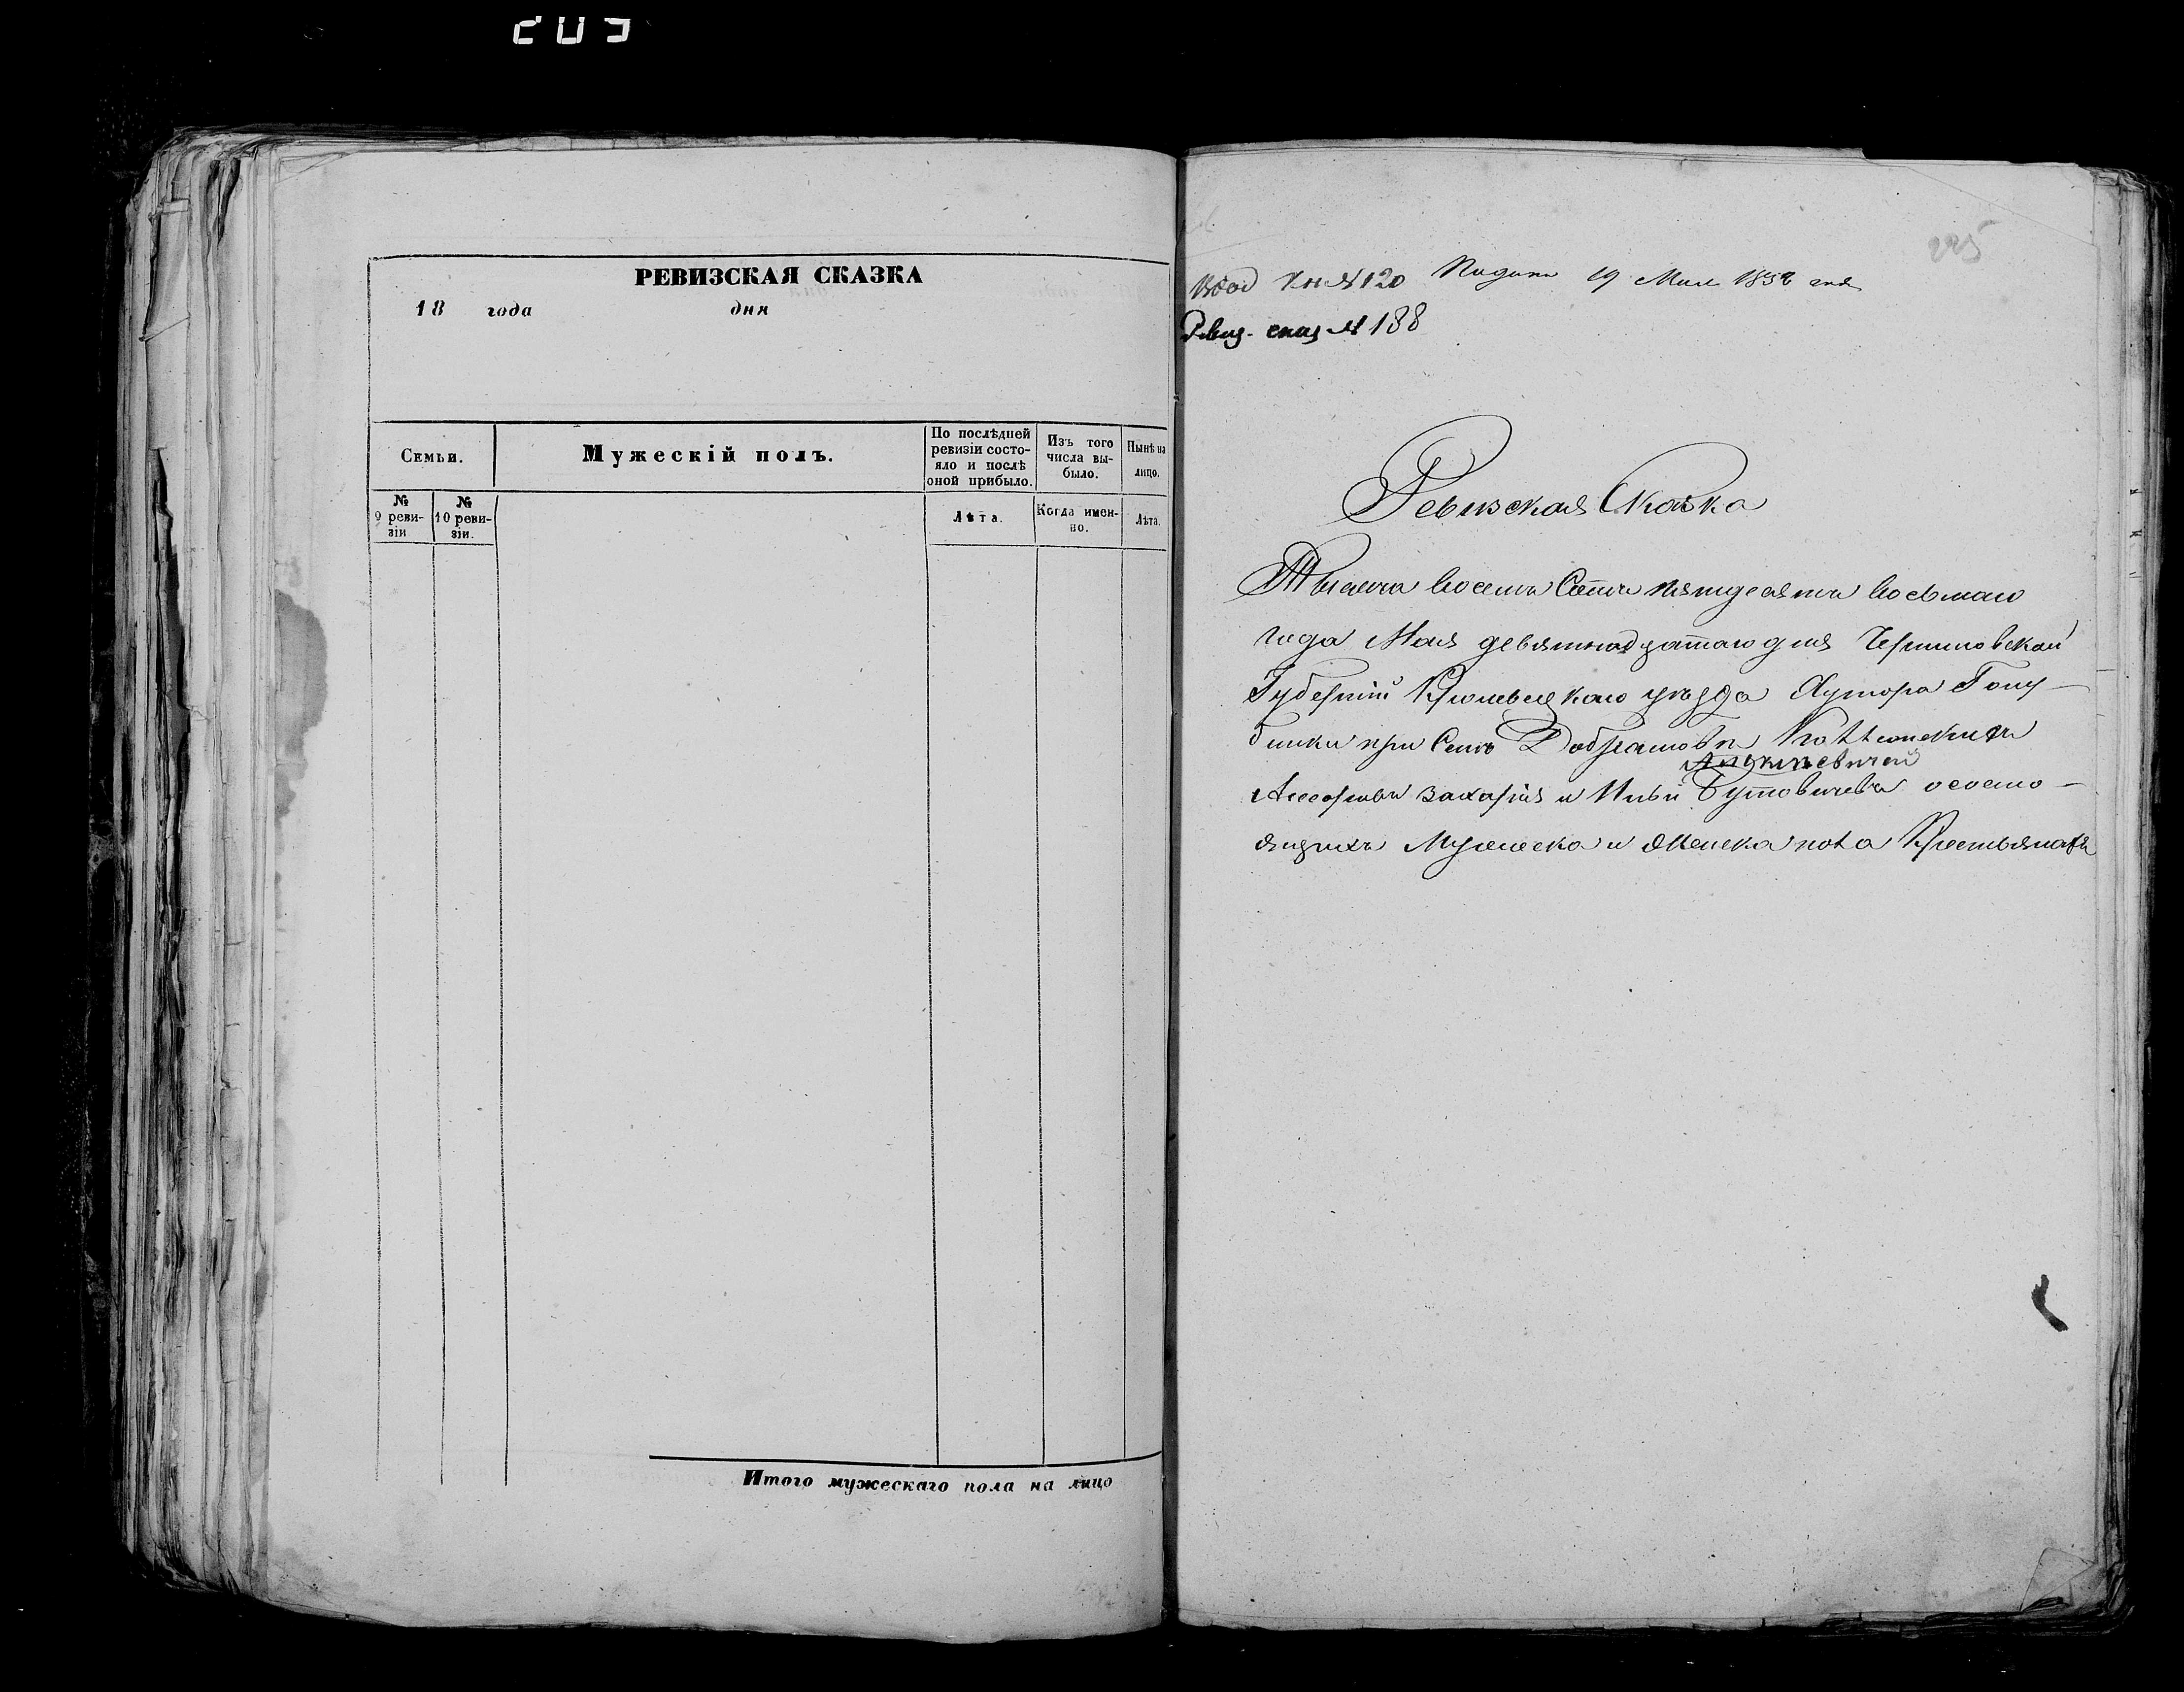 203
РЕВИЗСКАЯ СКАЗКА
18 года дня
Семьи.
Мужескій полъ.
По послѣдней ревизіи состо-
яло и послѣ
оной прибыло.
Изъ того
числа вы-
было.
Нынѣ на
лицо.
№
9 реви-
зіи
№
10 реви-
зіи.
Лѣта.
Когда имен-
но.
Лѣта.
Итого мужескаго пола на лицо
225
№ 120 Подана 19 Мая 1858 года
Ревиз. сказ № 188
Ревизская Сказка
Тысяча восемь Сотъ пятдесятъ восьмаго
года Мая девятнадцатаго дня Черниговской
Губерніи Кролевецкаго уѣзда Хутора Голу-
бики при Селѣ Добротовѣ Коллежскихъ
Ассесоровъ Захарія и Ильи Бутовичевъ о состо-
ящихъ Мужеска и Женска пола Крестьянахъ